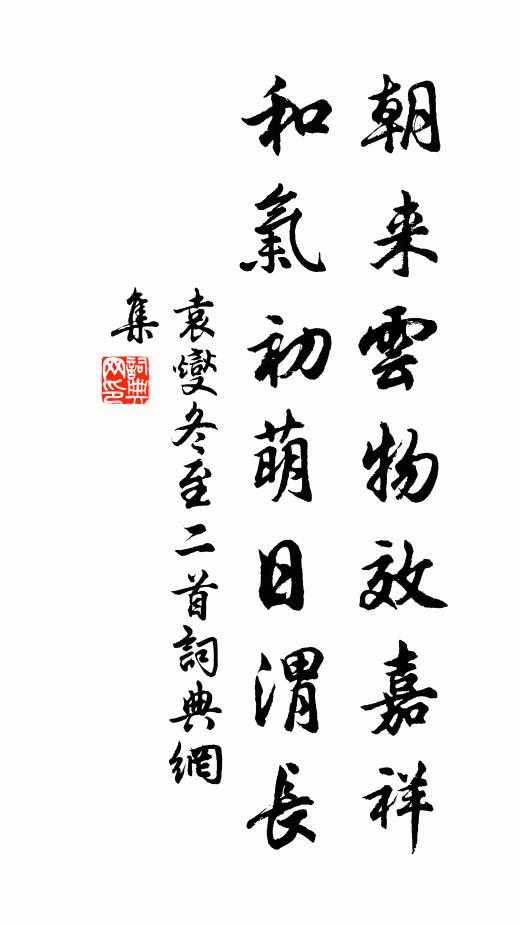 朝来雲物效嘉祥
和氣初萌日渭長
袁燮冬至二首詞典網
集
詞典网印